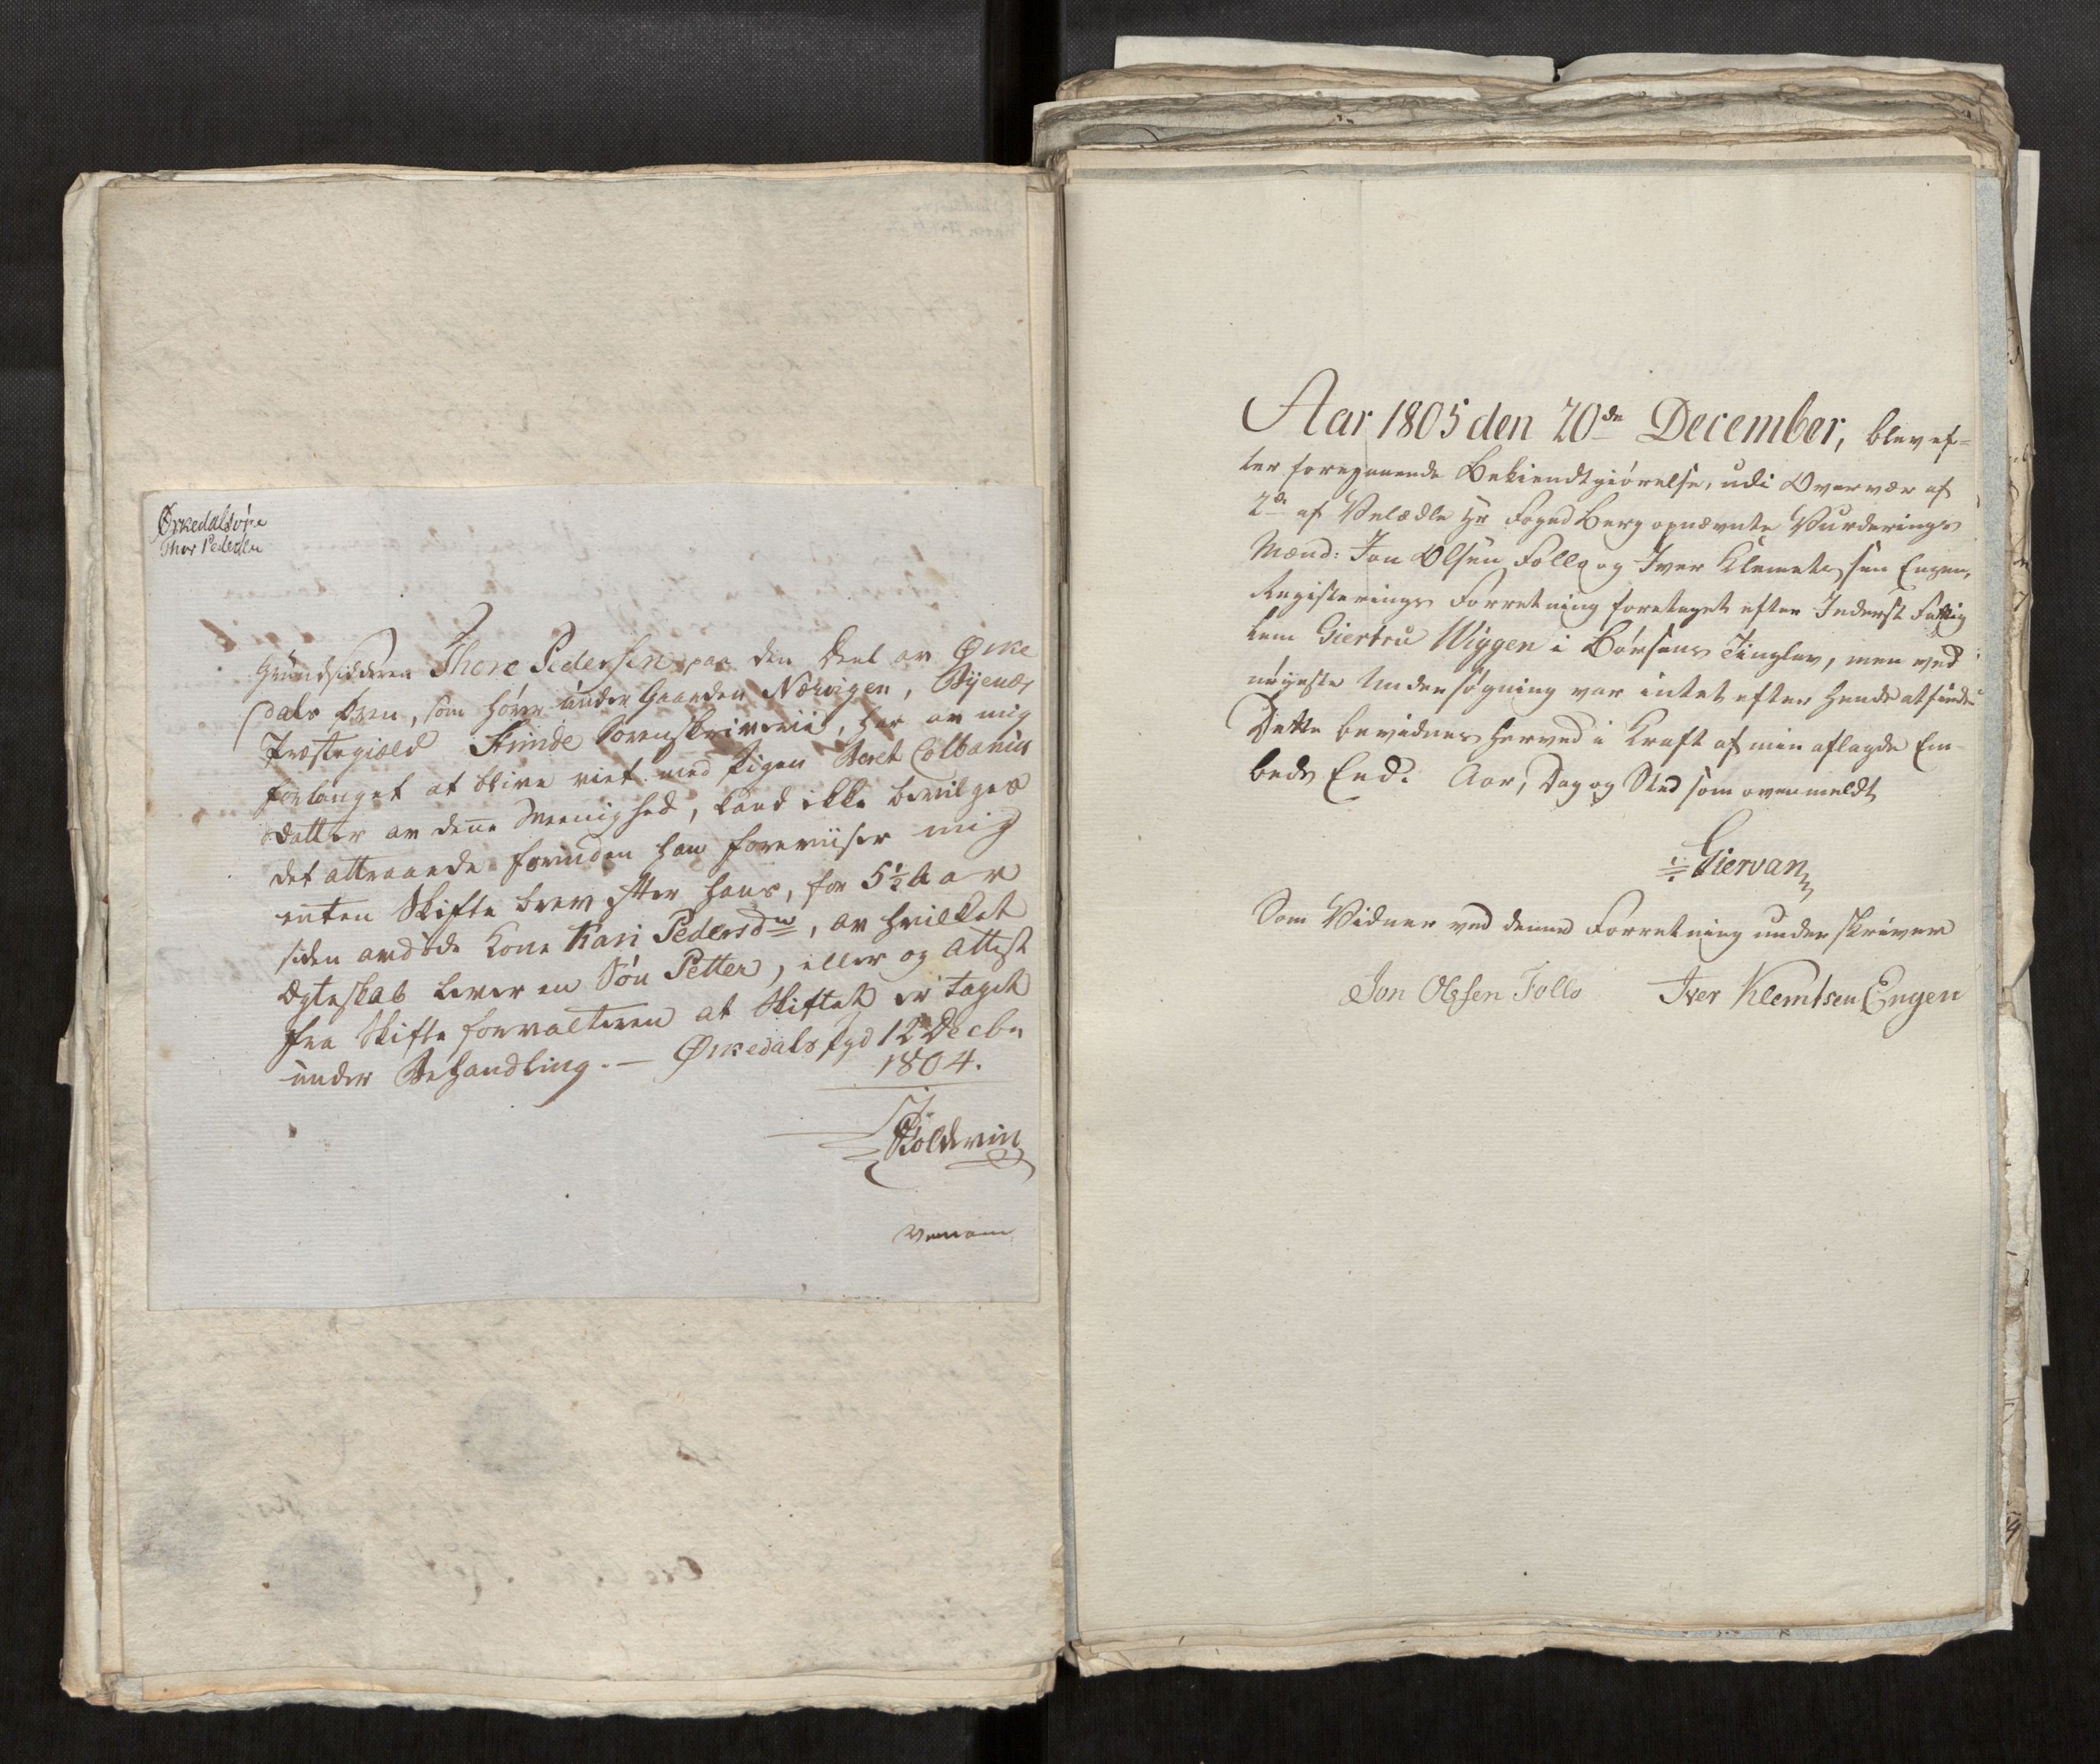 Ørkedalsøre
Thor Pedersen
Grundsidderen Thore Pedersen paa den Deel av Ørke
dals Øren, som hører under Gaarden Nærvigen, Byenæs
Præstegiæld Strinde Sorenskriverie, har av mig
forlanget at blive viet med Pigen Beret Colbanus
Datter av denne Meenighed, kand ikke bevilges
det attraaede forinden han foreviiser mig
enten Skifte brev efter hans, for 5½ Aar
siden avdöde Kone Kari Pedersdr, av hvilket
Ægteskab lever en Sön Petter, eller og Attest
fra Skifte forvalteren at Skiftet er taget
under Behandling. — Ørkedals Pgd 12 Decbr
1804.
Koldevin
Aar 1805 den 20de December, blev ef-
ter foregaaende Bekiendtgiørelse, udi Overvær af
2de af Velædle Hr Foged Berg opnævnte Vurderings
Mænd: Jon Olsen Follo og Iver Klemetsen Engen,
Registerings Forretning foretaget efter Inderst Fattig
lem Giertru Wiggen i Börsens Tinglav, men ved
nøyeste Undersøgning var intet efter hende at finde
Dette bevidnes herved i Kraft af min aflagde Em-
beds Eed. Aar, Dag og Sted som ovenmeldt
Giervan
Som Vidner ved denne Forretning underskriver
Jon Olsen Follo Iver Klemtsen Engen